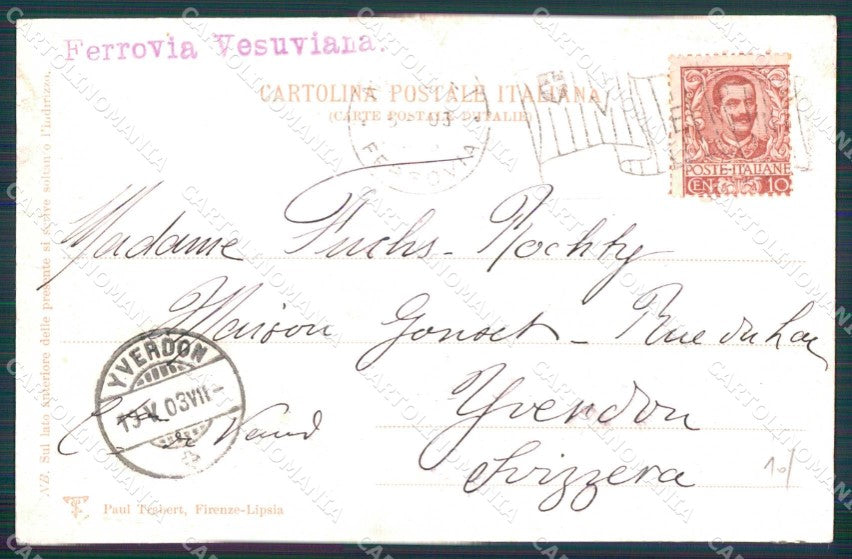 Ferrovia Vesuviana.
CARTOLINA POSTALE ITALIANA
(CARTE POSTALE D'ITALIE)
03
FERROVIA
POSTE·ITALIANE
CEN 10
Madame Fuchs-
Maison Gonset - Rue du Lac
Yverdon
Vaud
Svizzera
YVERDON
03 VII
10/
NB. Sul lato anteriore della presente si scrive soltanto l'indirizzo.
Paul Trabert, Firenze-Lipsia
CARTOLINOMANIA